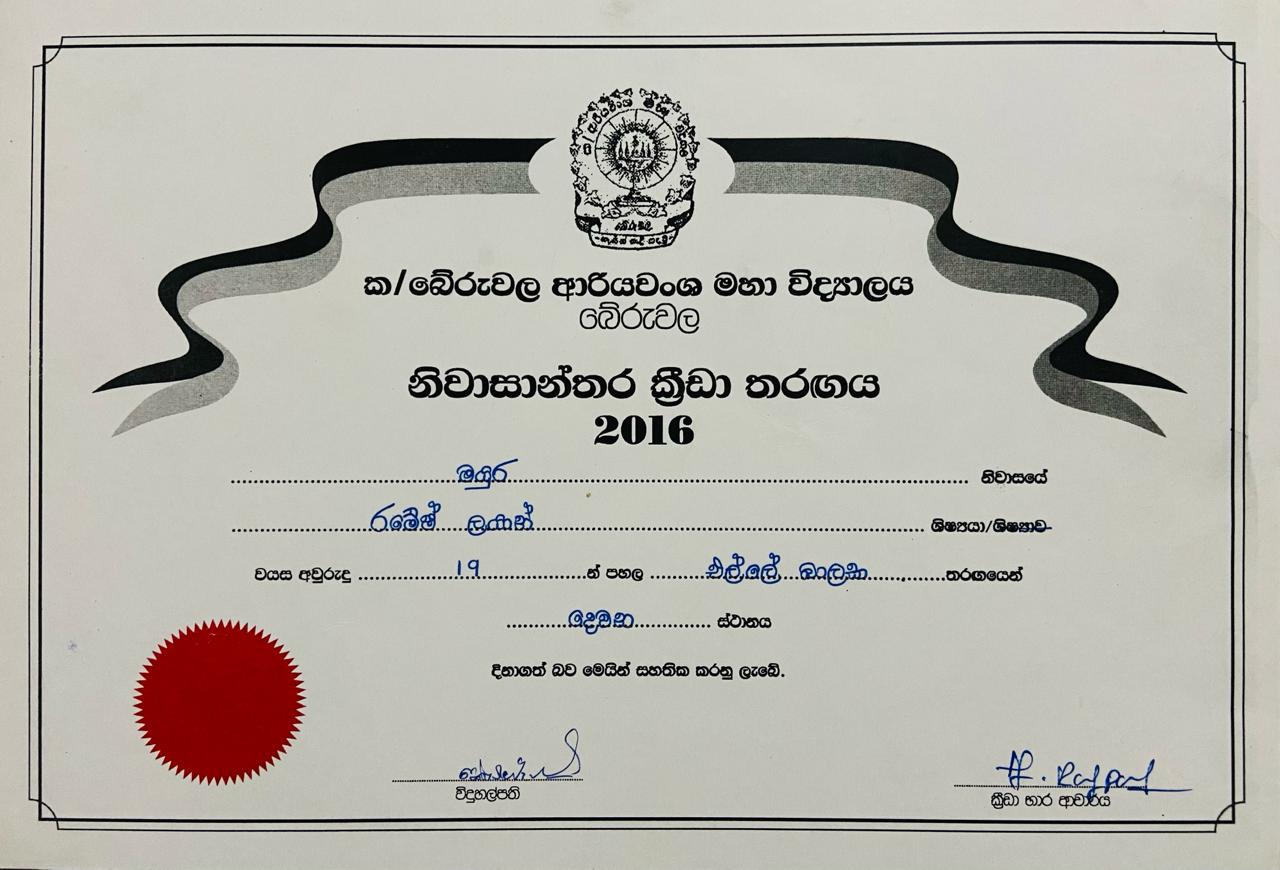 ක/බේරුවල ආරියවංශ මහා විද්‍යාලය
බේරුවල
නිවාසාන්තර ක්‍රීඩා තරඟය
2016
මයුර නිවාසයේ
රමේෂ් ලසාන් ශිෂ්‍යයා/ශිෂ්‍යාව
වයස අවුරුදු 19 න් පහල එල්ලේ බාලක තරඟයෙන්
දෙවන ස්ථානය
දිනාගත් බව මෙයින් සහතික කරනු ලැබේ.
විදුහල්පති
ක්‍රීඩා භාර ආචාර්ය